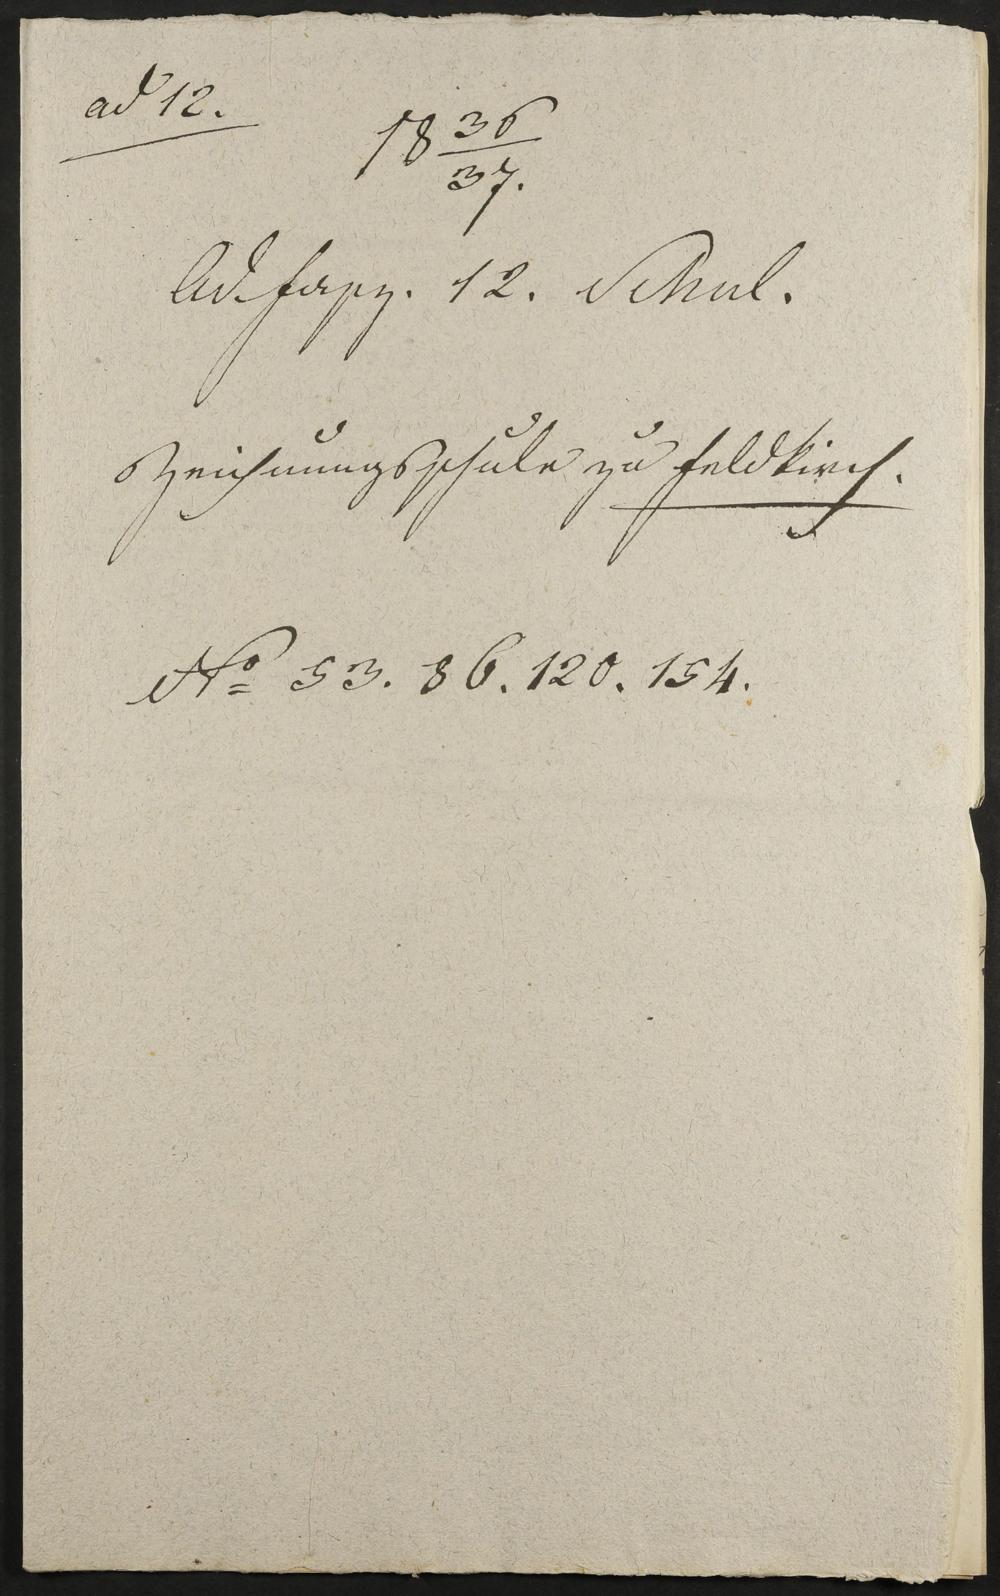 ad 12.
18 36/37.
Ad fasz. 12. Schul.
Zeichnungsschule zu Feldkirch.
No 53. 86. 120. 154.